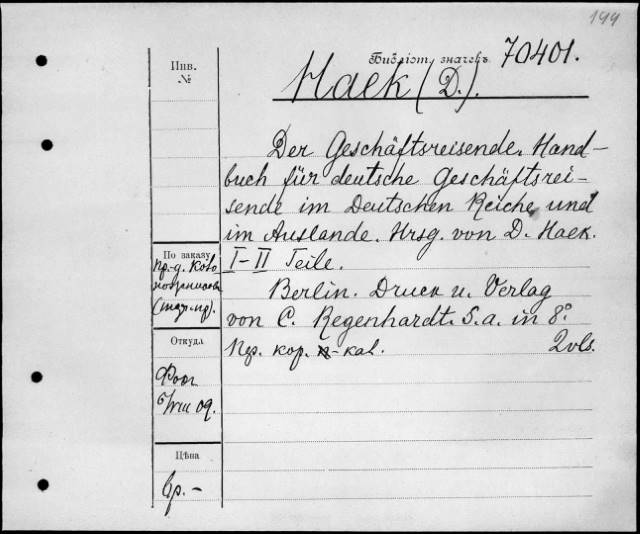 199
Библіот. значекъ 70401.
Инв.
№
Haek (D.).
Der Geschäftsreisende. Hand-
buch für deutsche Geschäftsrei-
sende im Deutschen Reiche und
im Auslande. Hrsg. von D. Haek.
I-II Teile.
Berlin. Druck u. Verlag
von C. Regenhardt. S.a. in 8°
кор. 2 vls.
По заказу
Откуда
09.
Цѣна